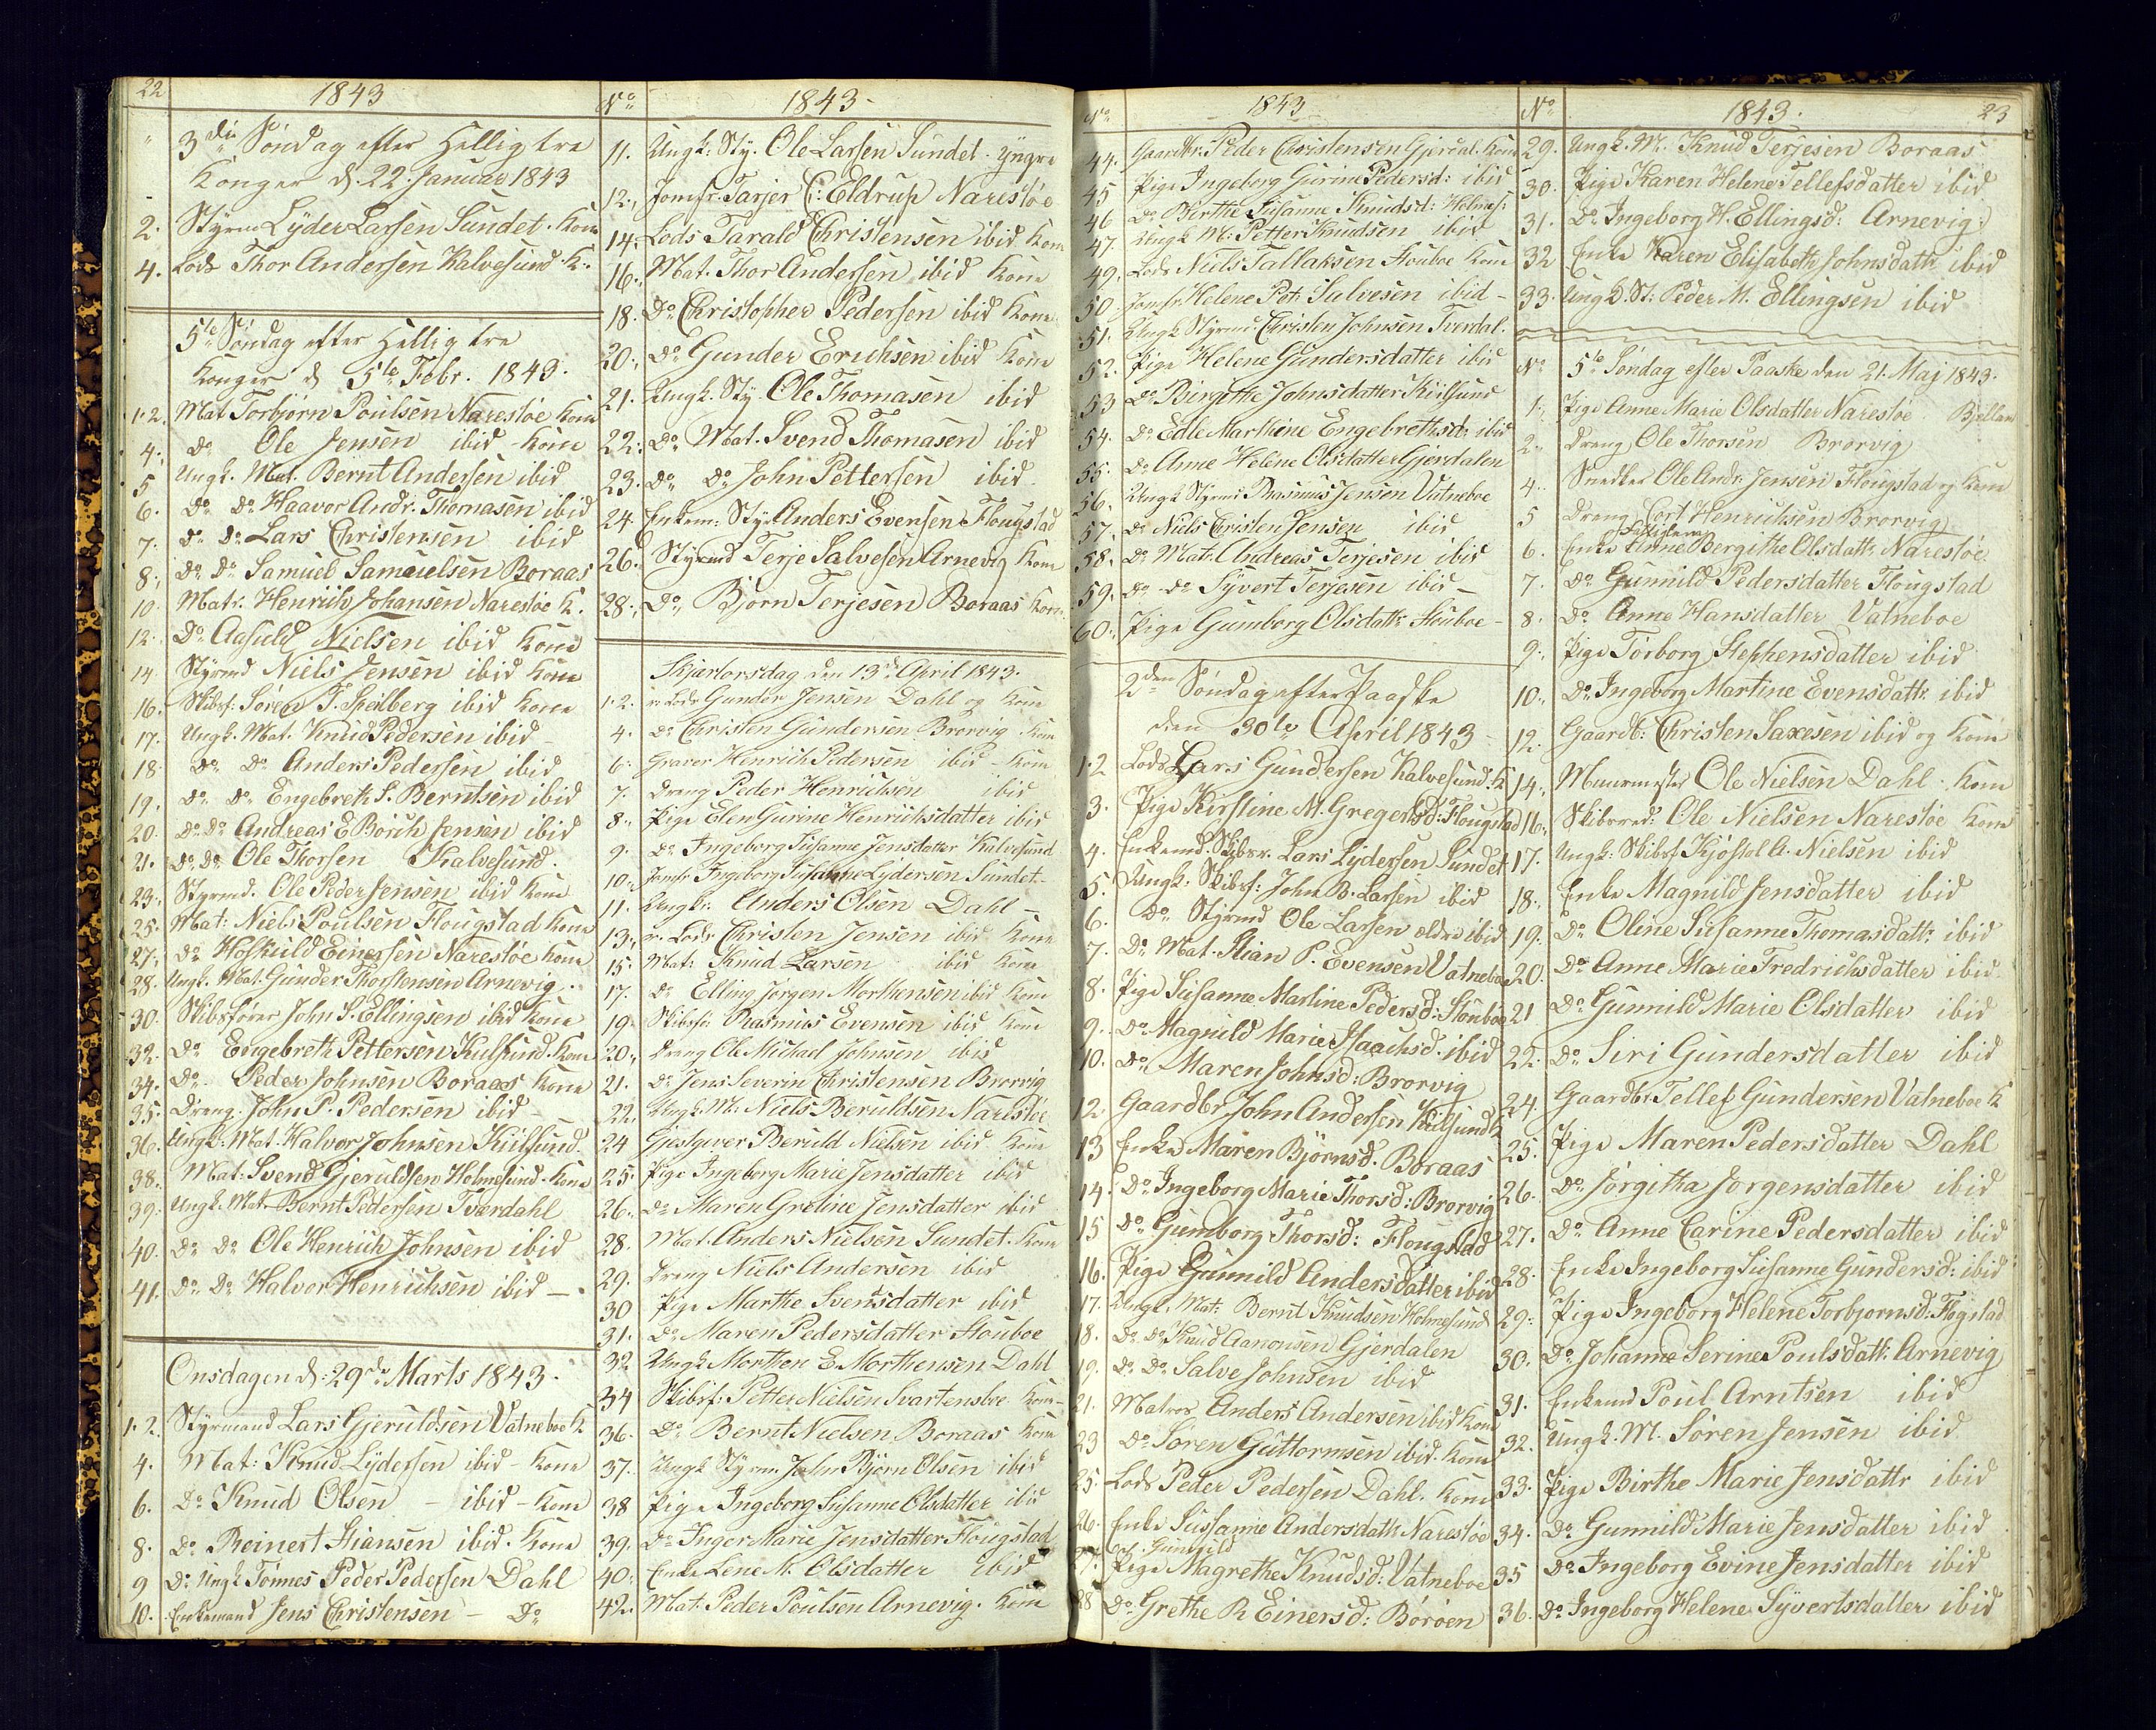 22
1843
3die Søndag efter Hellig tre
Konger d. 22 Januar 1843
2. Styrm Lyder Larsen Sundet. Kone
4. Lods Thor Andersen Kalvesund. K.
5te Søndag efter Hellig tre
Konger d 5te Febr. 1843.
1.2. Mat Torbjørn Poulsen Narestøe Kone
4. do Ole Jensen ibid - Kone
5 Ungk. Mat. Bernt Andersen ibid
6. Do Do Haavor Andr. Thomasen ibid
7. Do Do Lars Christensen ibid
8. Do Do Samuel Samuelsen Boraas
10. Matr. Henrich Johansen Narestøe K.
12. Do Aasuld Nielsen ibid Kone
14 Styrmd Niels Jensen ibid Kone
16. Skibsf: Søren T. Seilberg ibid Kone
17. Ungk. Mat. Knud Pedersen ibid -
18. Do Do Anders Pedersen ibid
19. Do Do Engebreth S. Berntsen ibid
20. Do Do Andreas E Borch Jensen ibid
21. Do Do Ole Thorsen Kalvesund.
23. Styrmd. Ole Peder Jensen ibid Kone
25. Mat: Niels Poulsen Flougstad Kone
27. do Hoskuld Einersen Narestøe Kone
28. Ungk. Mat. Gunder Thorstensen Arnevig.
30. Skibsfører John S. Ellingsen ibid Kone
32. Do Engebreth Pettersen Kulsund. Kone
34. Do Peder Johnsen Boraas Kone
35. Dreng. John P. Pedersen ibid -
36. Ungk. Mat. Halvor Johnsen Kiilsund.
38. Mat: Svend Gjeruldsen Holmesund. Kone
39. Ungk. Mat. Bernt Pedersen Tverdahl
40. Do Do Ole Henrich Johnsen ibid
41. Do Do Halvor Henrichsen ibid -
Onsdagen d: 29de Marts 1843.
1.2. Styrmand Lars Gjeruldsen Vatneboe K
4. Mat: Knud Lydersen ibid - Kone
6. Do Knud Olsen - ibid - Kone
8. Do Reinert Stiansen ibid. Kone
9 Do Ungk Tønnes Peder Pedersen Dahl
10. Enkemand Jens Christensen - Do
No 1843 -
11. Ungk: Sty. Ole Larsen Sundet. yngre
12. Jomfr. Tarjer C: Eldrup Narestøe
14. Lods Tarald Christensen ibid Kone
16. Mat. Thor Andersen ibid Kone
18. Do Christopher Pedersen ibid Kone
20. Do Gunder Erichsen ibid Kone
21. Ungk. Sty. Ole Thomasen ibid
22. Do Mat. Svend Thomasen ibid
23. Do Do John Pettersen ibid
24. Enkem: Sty. Anders Evensen Flougstad
26. Styrmd Terje Salvesen Arnevig Kone
28. Do Bjørn Terjesen Boraas Kone
Skjærtorsdag den 13de April 1843.
1.2. Lods Gunder Jensen Dahl og Kone
4. do Christen Gundersen Brorvig Kone
6. Graver Henrich Pedersen ibid - Kone
7. Dreng Peder Henrichsen ibid
8. Pige Elen Gurine Henrichsdatter ibid
9. do Ingeborg Susanne Jensdatter Kalvesund
10. Jomfr Ingeborg Susanne Lydersen Sundet
11. Ungk: Anders Olsen Dahl -
13. Lods Christen Jensen ibid Kone
15. Mat: Knud Larsen ibid Kone
17. Do Elling Jørgen Morthensen ibid Kone
19. Skibsf: Rasmus Evensen ibid Kone
20. Dreng Ole Michael Johnsen ibid
21. Do Jens Severin Christensen Brorvig
22. Ungk. M: Niels Beruldsen Narestøe
24 Gjestgiver Beruld Nielsen ibid Kone
25. Pige Ingeborg Marie Jensdatter ibid
26. do Maren Greline Jensdatter ibid
28. Mat. Anders Nielsen Sundet. Kone
29. Dreng Niels Andersen ibid
30 Pige Marthe Svensdatter ibid
31. Do Maren Pedersdatter Stouboe
32 Ungk Morthen E. Morthensen Dahl
34 Skibsf: Petter Nielsen Svartensboe Kone
36. Do Bernt Nielsen Boraas Kone
37. Ungk Styrm. John Bjørn Olsen ibid
38 Pige Ingeborg Susanne Olsdatter ibid
39. Do Inger Marie Jensdatter Flougstad
40. Enke Lene M. Olsdatter ibid
42. Mat. Peder Poulsen Arnevig. Kone
No 1843
44. Gaardbr. Peder Christensen Gjerdal. Kone
45 Pige Ingeborg Gurine Pedersd: ibid
46 Do Birthe Susanne Knudsd: Holmes:
47. Ungk M: Petter Knudsen ibid
49. Lods Niels Tallaksen Stouboe Kone
50. Jomfr Helene Pet: Salvesen ibid -
51. Ungk Styrmd: Christen Johnsen Tverdal.
52. Pige Helene Gundersdatter ibid
53 Do Birgitte Johnsdatter Kiilsund
54. Do Edle Marthine Engebrethsd: ibid
55. Do Anne Helene Olsdatter Gjerdalen
56. Ungk Styrm: Rasmus Jensen Vatneboe
57. Do Niels Christen Jensen ibid
58. Do Mat: Andreas Terjesen ibid
59. do do Syvert Terjesen ibid -
60. Pige Gumborg Olsdatt: Stouboe -
2den Søndag efter Paaske
den 30te April 1843 -
1.2 Lods Lars Gundersen Kalvesund. K
3. Pige Kirstine M. Gregersd: Flougstad
4. Enkemd. Skibsr. Lars Lydersen Sundet
5. Ungk: Skibsf: John B. Larsen ibid
6. Do Styrmd Ole Larsen ældre ibid
7. Do Mat. Stian P. Evensen Vatneboe
8. Pige Susanne Martine Pedersd: Stouboe
9. Do Magnild Marie Isaachsd. ibid
10. Do Maren Johnsd: Brorvig
12. Gaardbr. John Andersen Kiilsund K
13 Enke Maren Bjørnsd. Boraas
14. Do Ingeborg Marie Thorsd: Brorvig
15 Do Gumborg Thorsd: Flougstad
16. Pige Gunnild Andersdatter ibid
17. Ungk. Mat: Bernt Knudsen Holmesund
18. Do Do Knud Aanonsen Gjerdalen
19. Do Do Salve Johnsen ibid
21. Matros Anders Andersen ibid Kone
23 Do Søren Guttormsen ibid. Kone
25. Lods Peder Pedersen Dahl. Kone
26. Enke Susanne Andersdatt: Narestøe
Gunnild
27. Pige Magrethe Knudsd: Vatneboe
28 Do Grethe R Einersd: Børøen
No 1843. 23
29. Ungk. M. Knud Terjesen Boraas
30. Pige Karen Helene Tellefsdatter ibid
31. Do Ingeborg H. Ellingsd: Arnevig:
32 Enke Karen Elisabeth Johnsdattr ibid
33. Ungk. St: Peder M. Ellingsen ibid
No 5te Søndag efter Paaske den 21. Maj 1843.
1. Pige Anne Marie Olsdatter Narestøe Bjelland
2. Dreng Ole Thorsen Brorvig
4. Snedker Ole Andr: Jensen Flougstad og Kone
5 Dreng Cort Henrichsen Brorvig
6. Enke Anne Bergithe Olsdattr Narestøe
7. Do Gunnild Pedersdatter Flougstad
8. Do Anne Hansdatter Vatneboe
9. Pige Torborg Stephensdatter ibid
10. Do Ingeborg Martine Evensdattr. ibid
12. Gaardb: Christen Saxesen ibid og Kone
14. Muurmester Ole Nielsen Dahl. Kone
16. Skibsred: Ole Nielsen Narestøe Kone
17. Ungk: Skibsf Kjøstol A. Nielsen ibid
18. Enke Magnild Jensdatter ibid
19. Do Oline Susanne Thomasdatt: ibid
20. Do Anne Marie Fredrichsdatter ibid
21 Do Gunnild Marie Olsdatter ibid
22. Do Siri Gundersdatter ibid
24. Gaardbr Tellef Gundersen Vatneboe K
25. Pige Maren Pedersdatter Dahl
26. Do Jørgitha Jørgensdatter ibid
27. Do Anne Carine Pedersdatter ibid
28. Enke Ingeborg Susanne Gundersd: ibid
29. Pige Ingeborg Helene Torbjornsd: Flogstad
30. Do Johanne Serine Poulsdatt: Arnevig
31. Enkemd Poul Arntsen ibid
32. Ungk. M. Søren Jensen ibid
33. Pige Birthe Marie Jensdattr ibid
34. Do Gunnild Marie Jensdatter ibid
35 Do Ingeborg Evine Jensdatter ibid
36. Do Ingeborg Helene Syvertsdatter ibid